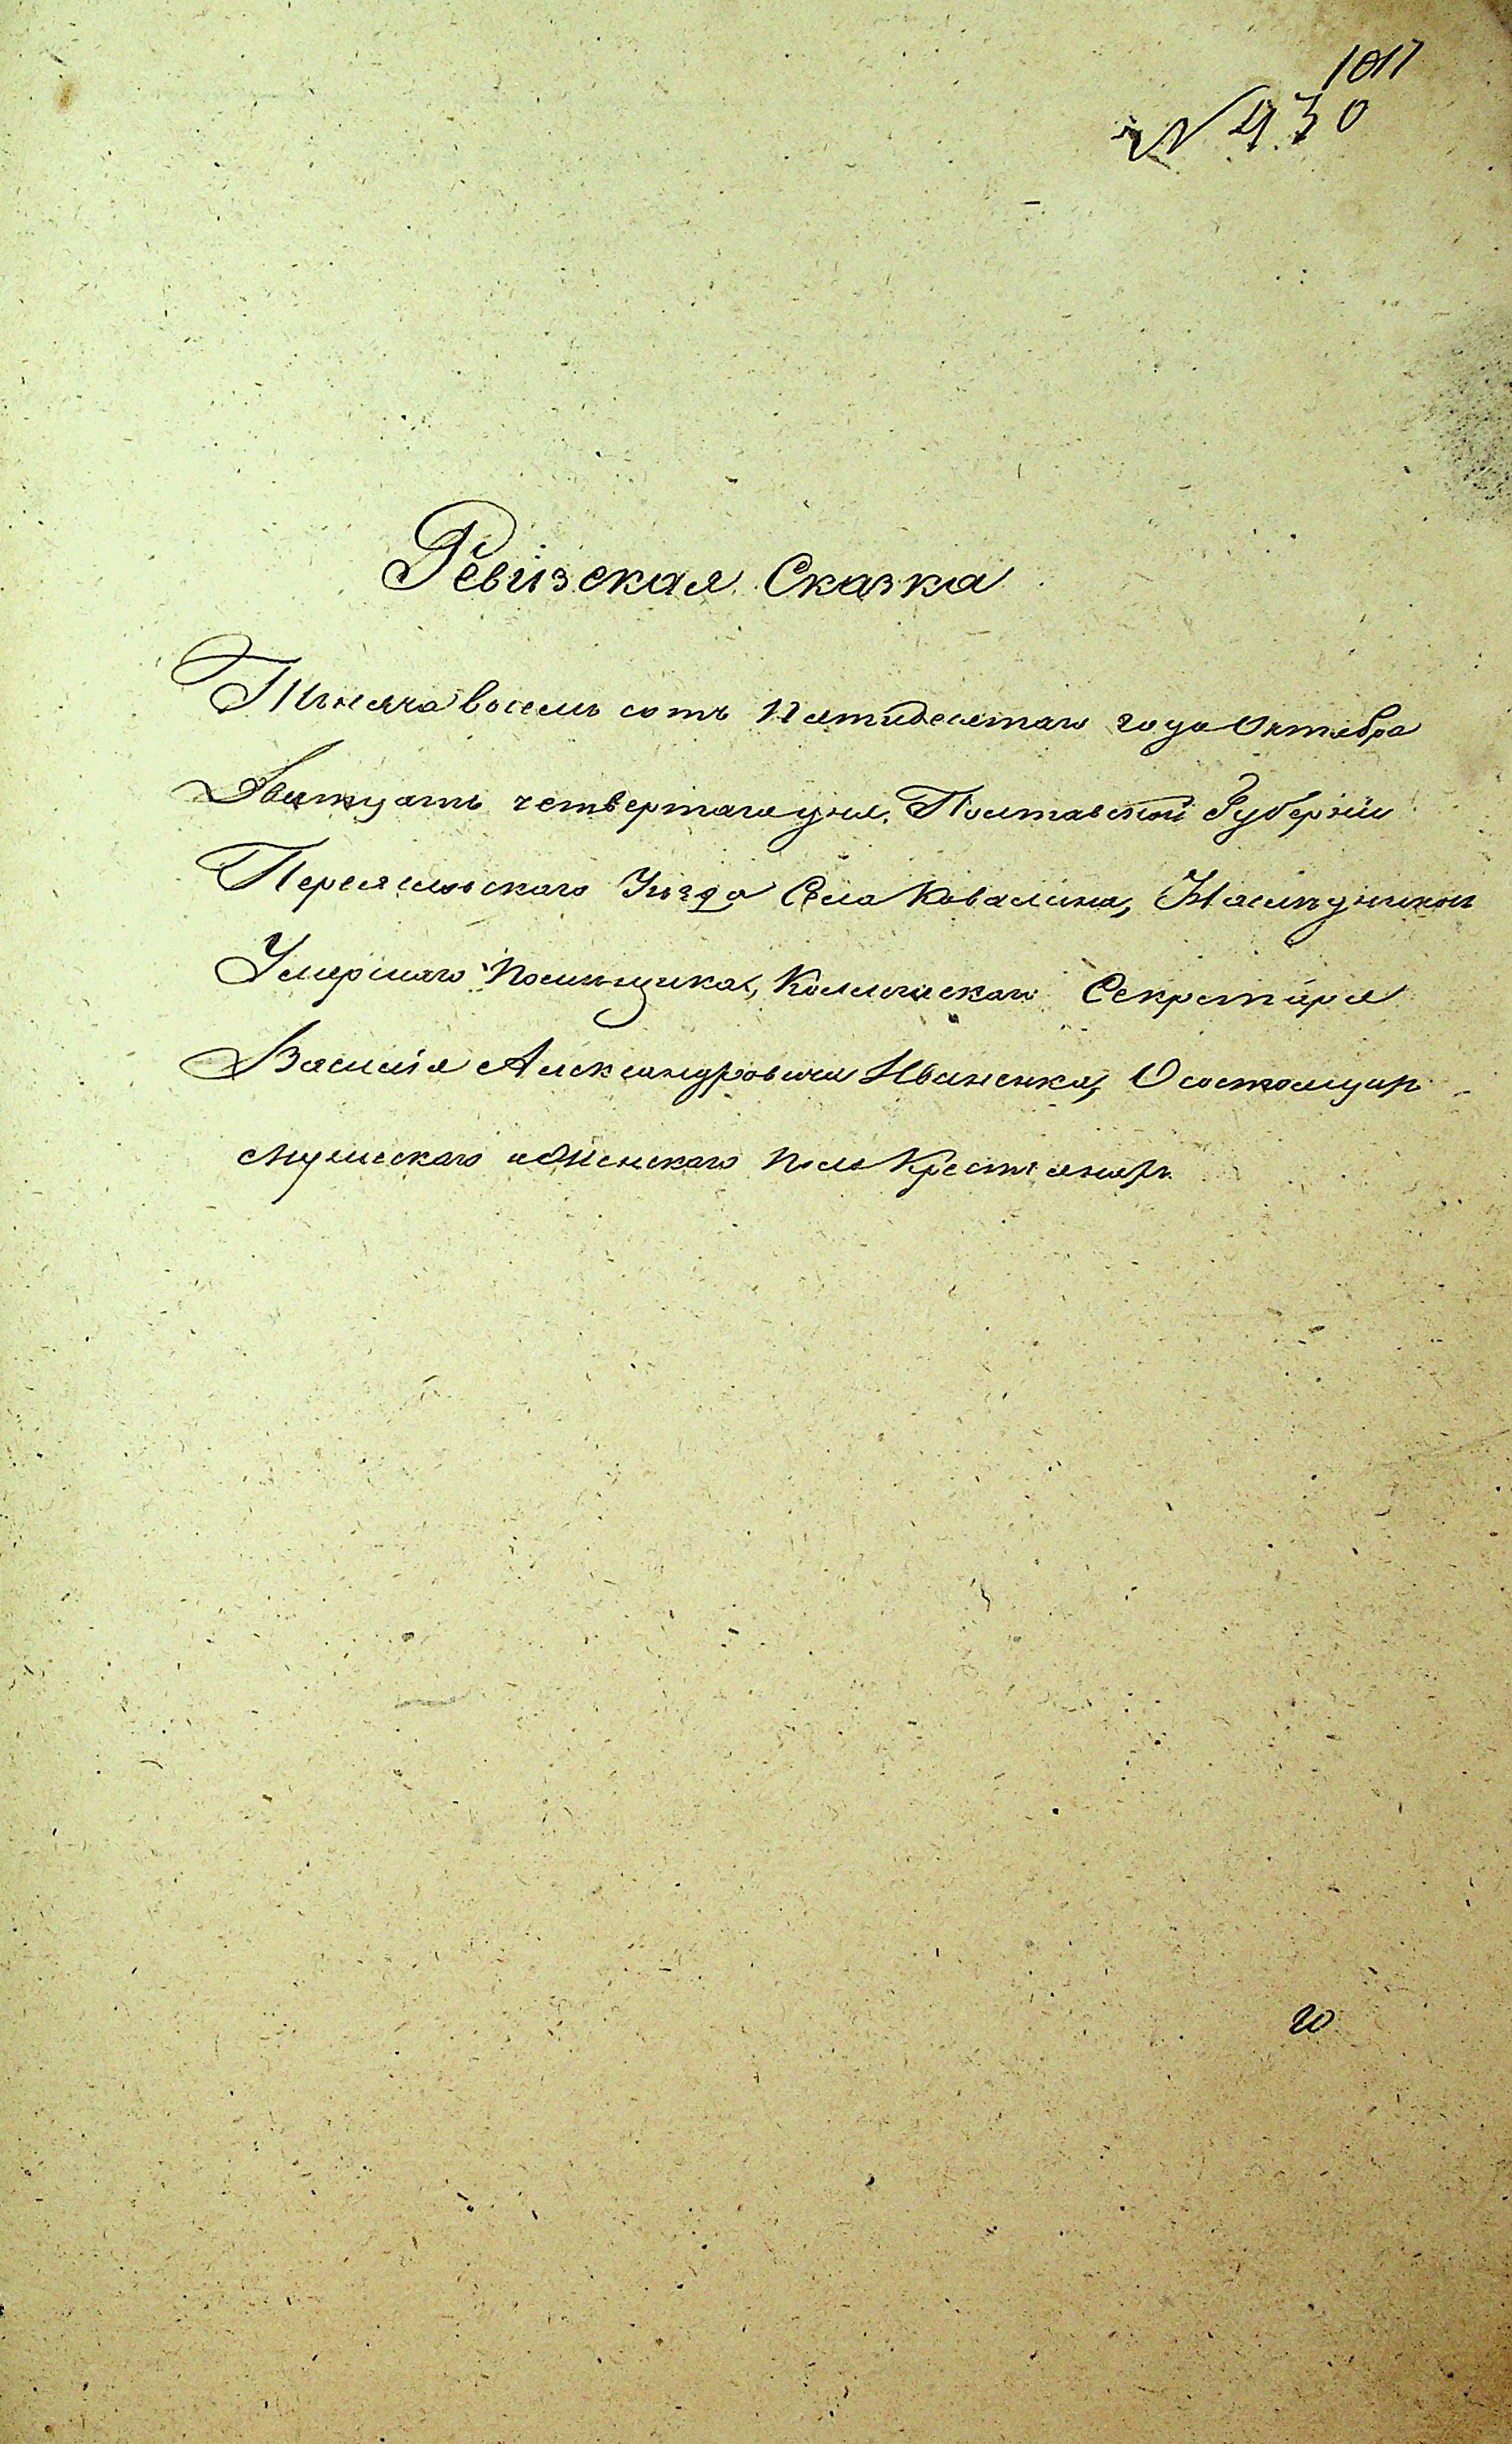 1017
№ 930
Ревизская Сказка
Тысяча восемь сотъ Пятидесятаго года Октября
Двадцать четвертаго дня. Полтавской Губерніи
Переяславскаго Уѣзда Села Ковалина,
Умершаго Помѣщика, Коллежскаго Секретаря
Василія Александровича Иваненка, О состоящихъ
Мужескаго и Женскаго Пола Крестьянахъ
20